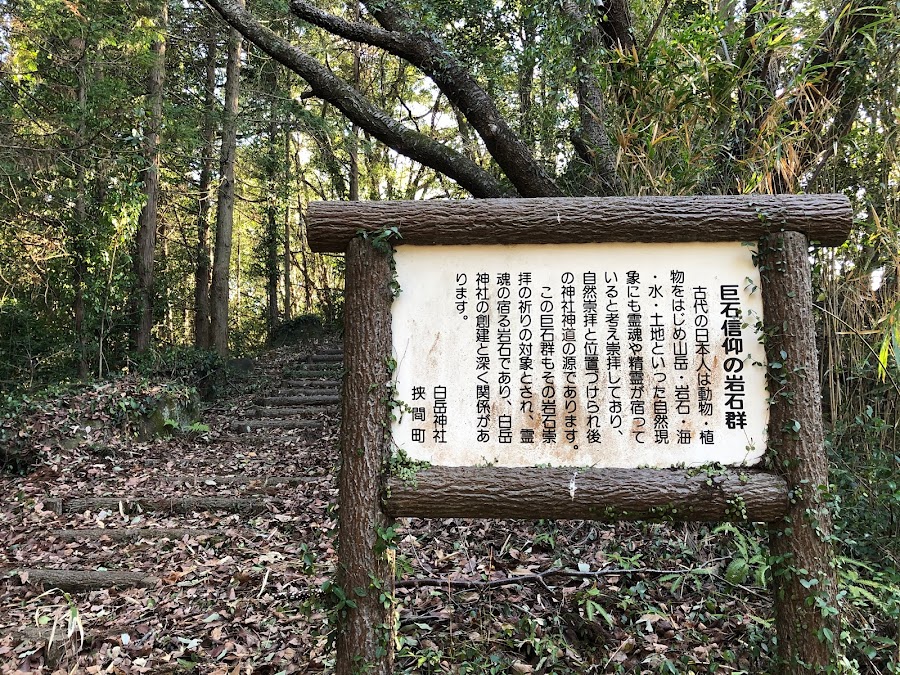 巨石信仰の岩石群
古代の日本人は動物・植
物をはじめ山岳・岩石・海
・水・土地といった自然現
象にも霊魂や精霊が宿って
いると考え崇拝しており、
自然崇拝と位置づけられ後
の神社神道の源であります。
この巨石群もその岩石崇
拝の祈りの対象とされ、霊
魂の宿る岩石であり、白岳
神社の創建と深く関係があ
ります。
白岳神社
挾間町